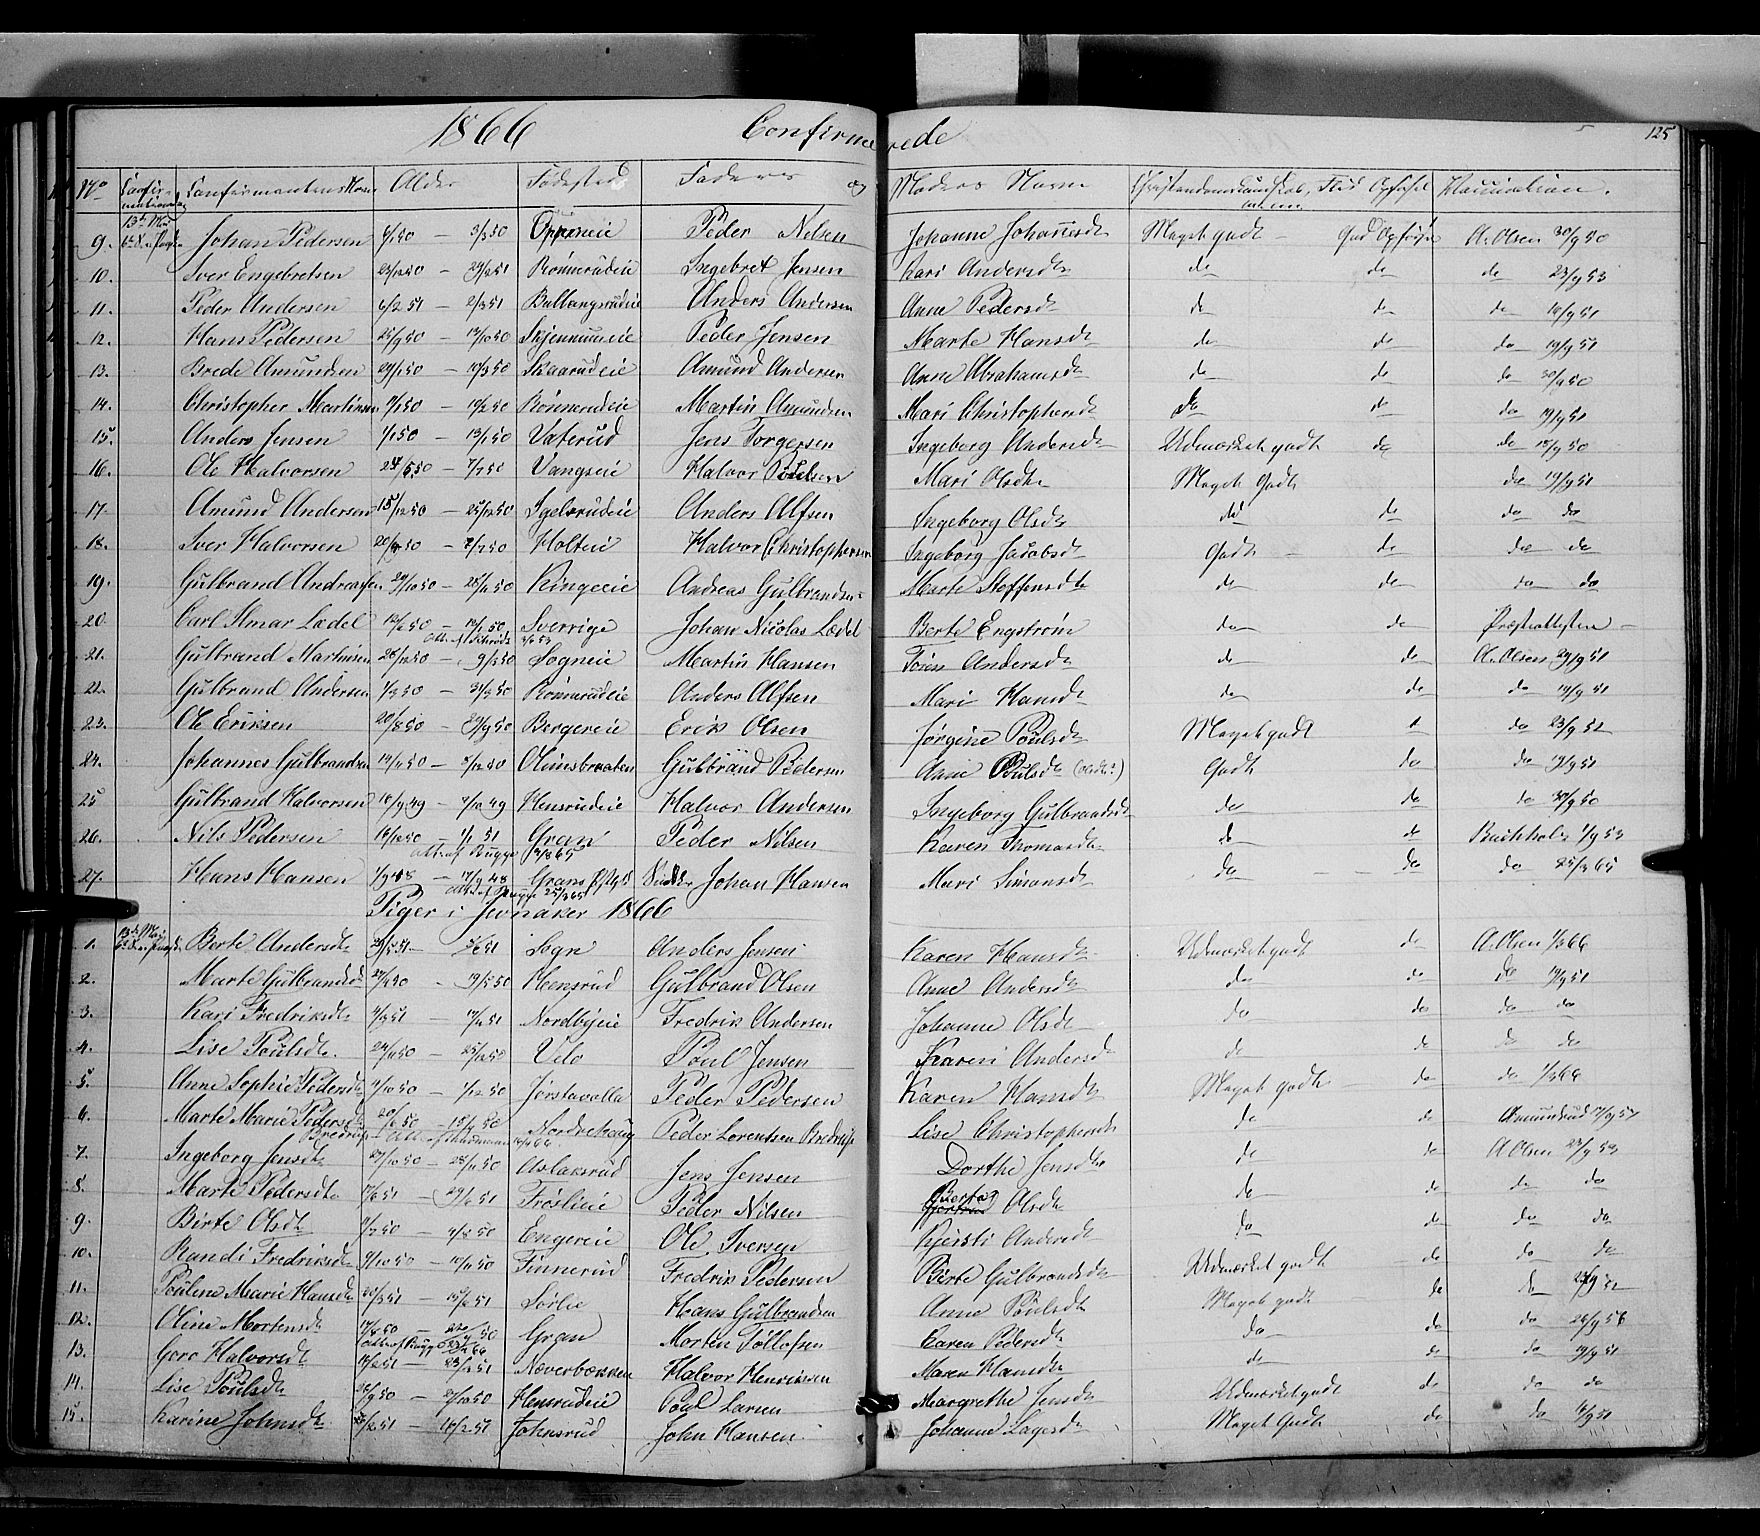 1866 Confirmerede 125
No Confirmantens Navn Alder Fødested Faders og Moders Navn Christendomskundskab, Flid Opførsel Vaccination.
13de Mai
9. Johan Pedersen 3/3 50 Opperneie Peder Nilsen Johanne Johannesdt Meget godt God Opførsel A. Olsen 30/9 50
10. Iver Engebretsen 23/12 50 — 29/3 51 Rønnerudeie Ingebret Jensen Kari Andersdt do do do 23/9 53
11. Peder Andersen 6/2 51 — 2/3 51 Ballangrudeie Anders Andersen Anne Pedersdt do do do 14/9 51
12. Hans Pedersen 25/9 50 — 13/10 50 Skjennumeie Peder Jensen Marte Hansdt do do do 19/9 51
13. Brede Amundsen 29/1 50 — 10/3 50 Skaarudeie Amund Andersen Anne Abrahamsdt do do do 30/9 50
14. Christopher Martinsen 17/1 50 — 19/2 50 Rønnerudeie Martin Amundsen Mari Christophersdt do do do 19/9 51
15. Anders Jensen 1/1 50 — 13/1 50 Vaterud Jens Torgersen Ingeborg Andersdt Udmærket godt do do 18/9 50
16. Ole Halvorsen 24/5 50 — 7/7 50 Vangseie Halvor Poulsen Mari Olsdt Meget Godt do 19/9 51
17. Amund Andersen 15/12 50 — 25/12 50 Igelsrudeie Anders Alfsen Ingeborg Olsdt do do do do
18. Iver Halvorsen 20/6 50 — 7/7 50 Holteie Halvor Christophersen Ingeborg Jacobsdt Godt — do do do
19. Gulbrand Andreassen 29/10 50 — 25/11 50 Ringeeie Andreas Gulbrandsen Marte Steffensdt do do do do
20. Carl Ilmar Lædel 12/1 50 — 19/1 50 Sverrige Johan Nicolas Lædel Berte Engstrøm do do Præsteattesten —
21. Gulbrand Martinsen 26/12 50 — 9/3 50 Sogneie Martin Hansen Toren Andersdt do do A. Olsen 29/9 51
22. Gulbrand Andersen 1/3 50 — 31/3 50 Rønnerudeie Anders Alfsen Mari Hansdt do do do 19/9 51
23. Ole Eriksen 20/8 50 — 29/9 50 Bergereie Erik Olsen Jørgine Poulsdt Meget godt do 23/9 52
24. Johannes Gulbrandsen 14/11 50 — 8/12 50 Olimsbraaten Gulbrand Pedersen Anne Poulsdt (Olsdt?) Godt do do 19/9 51
25 Gulbrand Halvorsen 16/9 49 — 7/10 49 Hensrudeie Halvor Andersen Ingeborg Gulbrandsdt do do do 30/9 50
26. Nils Pedersen 14/12 50 — 1/1 51 Gran Peder Nilsen Karen Thomasdt do do Buchholz 1/9 53
Att. af Bugge 13/8 65
27. Hans Hansen 1/9 48 — 17/9 48 Grans Johan Hansen Mari Simonsdt do — do do 25/3 65
Att. af Bugge 25/3 65
Piger i Jevnaker 1866
13de Mai
1. Berte Andersdt Sogn Anders Jensen Karen Hansdt Udmærket godt do A. Olsen 1/3 66
2. Marte Gulbrandsdt 29/4 50 — 19/5 50 Hensrud Gulbrand Olsen Anne Andersdt do do do 19/9 51
3. Kari Fredriksdt 4/3 51 — 14/4 51 Nordbyeie Fredrik Andersen Johanne Olsdt do do do do
4. Lise Poulsdt. 24/11 50 — 25/12 50 Velo Poul Jensen Karen Andersdt do do do do
5. Anne Sophie Pedersdt 11/10 50 — 1/12 50 Jørstavolla Peder Pedersen Karen Hansdt Meget godt do do 1/3 66
6. Marte Marie Pedersdt 20/6 50 — 15/9 50 Nordrehaug Peder Lorentsen Bredrup Lise Christophersdt do do Amundrud 17/9 57
7. Ingeborg Jensdt 27/10 50 — 28/11 50 Aslaksrud Jens Jensen Dorthe Jensdt do do A. Olsen 23/9 53
8. Marte Pedersdt 17/6 51 — 29/6 51 Frøslieie Peder Nilsen Bertea Olsdt do do do do
9. Birte Olsdt 7/7 50 — 4/8 50 Engereie Ole Iversen Kjersti Andersdt do do do do
10. Randi Fredriksdt 9/10 50 — 10/11 50 Finnerud Fredrik Pedersen Birte Gulbrandsdt Udmærket godt do do do
11. Poulene Marie Hansdt 20/3 51 — 15/6 51 Sørlie Hans Gulbrandsen Anne Poulsdt Meget godt do do 23/9 52
12. Oline Mortensdt 17/8 50 — 22/9 50 Gran Morten Tollofsen Karen Pedersdt do do do 26/9 56
Att. af Bugge
13. Goro Halvorsdt 16/2 51 — 23/2 51 Næverbækken Halvor Henriksen Maren Hansdt do do do 19/9 51
14. Lise Poulsdt 26/9 50 — 27/10 50 Hensrudeie Poul Larsen Margrethe Jensdt Udmærket godt do do do
15. Karine Johnsdt — 16/2 51 Johnsrud John Hansen Johanne Lagesdt Meget Godt do do